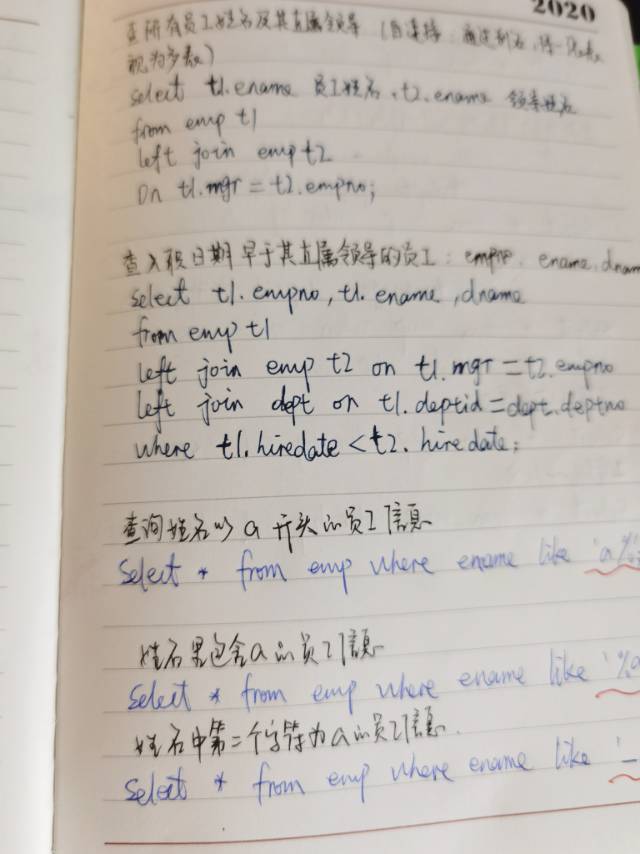 2020
查所有员工姓名及其直属领导（自连接：通过别名，将一张表
视为多表）
select t1.ename 员工姓名，t2.ename 领导姓名
from emp t1
left join emp t2
on t1.mgr = t2.empno;
查入职日期早于其直属领导的员工：empno, ename, dnam
select t1.empno, t1.ename, dname
from emp t1
left join emp t2 on t1.mgr = t2.empno
left join dept on t1.deptid = dept.deptno
where t1.hiredate < t2.hiredate;
查询姓名以a开头的员工信息
Select * from emp where ename like 'a%'
姓名里包含a的员工信息
Select * from emp where ename like '%a
姓名中第二个字符为a的员工信息.
Select * from emp where ename like '_